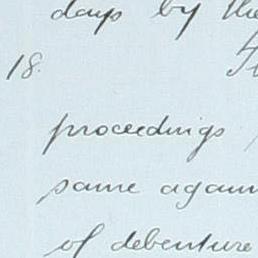 days by the
18.
proceedings
same again
of debenture